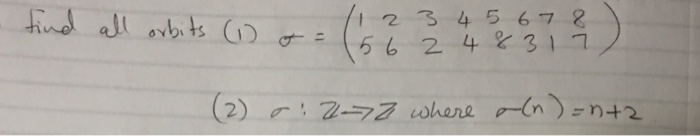 find all orbits (1) σ = (1 2 3 4 5 6 7 8
5 6 2 4 8 3 1 7)
(2) σ: ℤ→ℤ where σ(n) = n+2